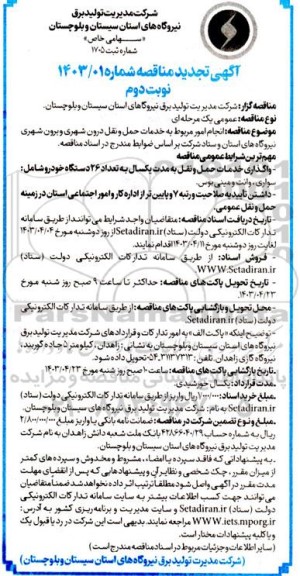 شرکت مدیریت تولید برق
نیروگاه های استان سیستان و بلوچستان
«سهامی خاص»
شماره ثبت ۱۷۰۵
آگهی تجدید مناقصه شماره ۱۴۰۳/۰۱
نوبت دوم
مناقصه گزار: شرکت مدیریت تولید برق نیروگاهای استان سیستان و بلوچستان.
نوع مناقصه: عمومی یک مرحله ای
موضوع مناقصه: انجام امور مربوط به خدمات حمل و نقل درون شهری و برون شهری
نیروگاه های استان و ستاد شرکت بر اساس ضوابط مندرج در اسناد مناقصه.
مهم ترین شرایط عمومی مناقصه
- واگذاری خدمات حمل ونقل به مدت یکسال به تعداد ۲۶ دستگاه خودرو شامل:
سواری، وانت و مینی بوس.
- داشتن تأییدیه صلاحیت ورتبه ۷ و پایین تر از اداره کار و امور اجتماعی استان در زمینه
حمل ونقل عمومی.
- تاریخ دریافت اسناد مناقصه: متقاضیان واجد شرایط می توانند از طریق سامانه
تدارکات الکترونیکی دولت (ستاد) Setadiran.ir از روز دوشنبه مورخ ۱۴۰۳/۰۴/۰۴
لغایت روز دوشنبه مورخ ۱۴۰۳/۰۴/۱۱ اقدام نمایند.
- فروش اسناد: از طریق سامانه تدارکات الکترونیکی دولت (ستاد)
WWW.Setadiran.ir
- تاریخ تحویل پاکت های مناقصه: حداکثر تا ساعت ۹ صبح روز شنبه مورخ
۱۴۰۳/۰۴/۲۳
- محل تحویل و بازگشایی پاکت های مناقصه: از طریق سامانه تدارکات الکترونیکی
دولت (ستاد) Setadiran.ir.
- توضیح اینکه «پاکت الف» به امور تدارکات و قراردادهای شرکت مدیریت تولید برق
نیروگاه های استان سیستان و بلوچستان به نشانی: زاهدان، کیلومتر ۵ جاده کوربید،
نیروگاه گازی زاهدان. تلفن: ۰۵۴۳۱۱۳۷۳۱۳ تحویل داده شود.
.تاریخ بازگشایی پاکت های مناقصه: ساعت ۱۰ صبح روز شنبه مورخ ۱۴۰۳/۰۴/۲۳
.مدت قرارداد: یکسال خورشیدی.
.مبلغ خرید اسناد: ۱/۰۰۰/۰۰۰ ریال واریز از طریق سامانه تدارکات الکترونیکی دولت (ستاد)
Setadiran.ir به نام: شرکت مدیریت تولید برق نیروگاه های سیستان و بلوچستان.
- مبلغ و نوع تضمین شرکت در مناقصه: ضمانت نامه بانکی یا واریز مبلغ ۲/۸۰۰/۰۰۰/۰۰۰
ریال به شماره حساب ۴۲۸۶۶۴۰۲۹ بانک ملت شعبه دانش زاهدان به نام شرکت
مدیریت تولید برق نیروگاه های استان سیستان و بلوچستان.
- به پیشنهاداتی که فاقد سپرده یا امضاء، مشروط و مخدوش و سپرده های کمتر
از میزان مقرر، چک شخصی و نظایر آن و پیشنهادهایی که پس از انقضای مهلت
مدت مقرر در آگهی واصل شود مطلقا ترتیب اثر داده نخواهد شد ضمنا متقاضیان
می توانند جهت کسب اطلاعات بیشتر به سایت سامانه تدارکات الکترونیکی
دولت (ستاد) Setadiran.ir و سایت مدیریت و برنامه ریزی کشور به آدرس:
WWW.iets.mporg.ir مراجعه نمایند. بدیهی است این شرکت در رد یا قبول یک
و یا کلیه پیشنهادات مختار است.
(سایر اطلاعات و جزئیات مربوط در اسناد مناقصه مندرج است)
(شرکت مدیریت تولید برق نیروگاه های استان سیستان و بلوچستان)